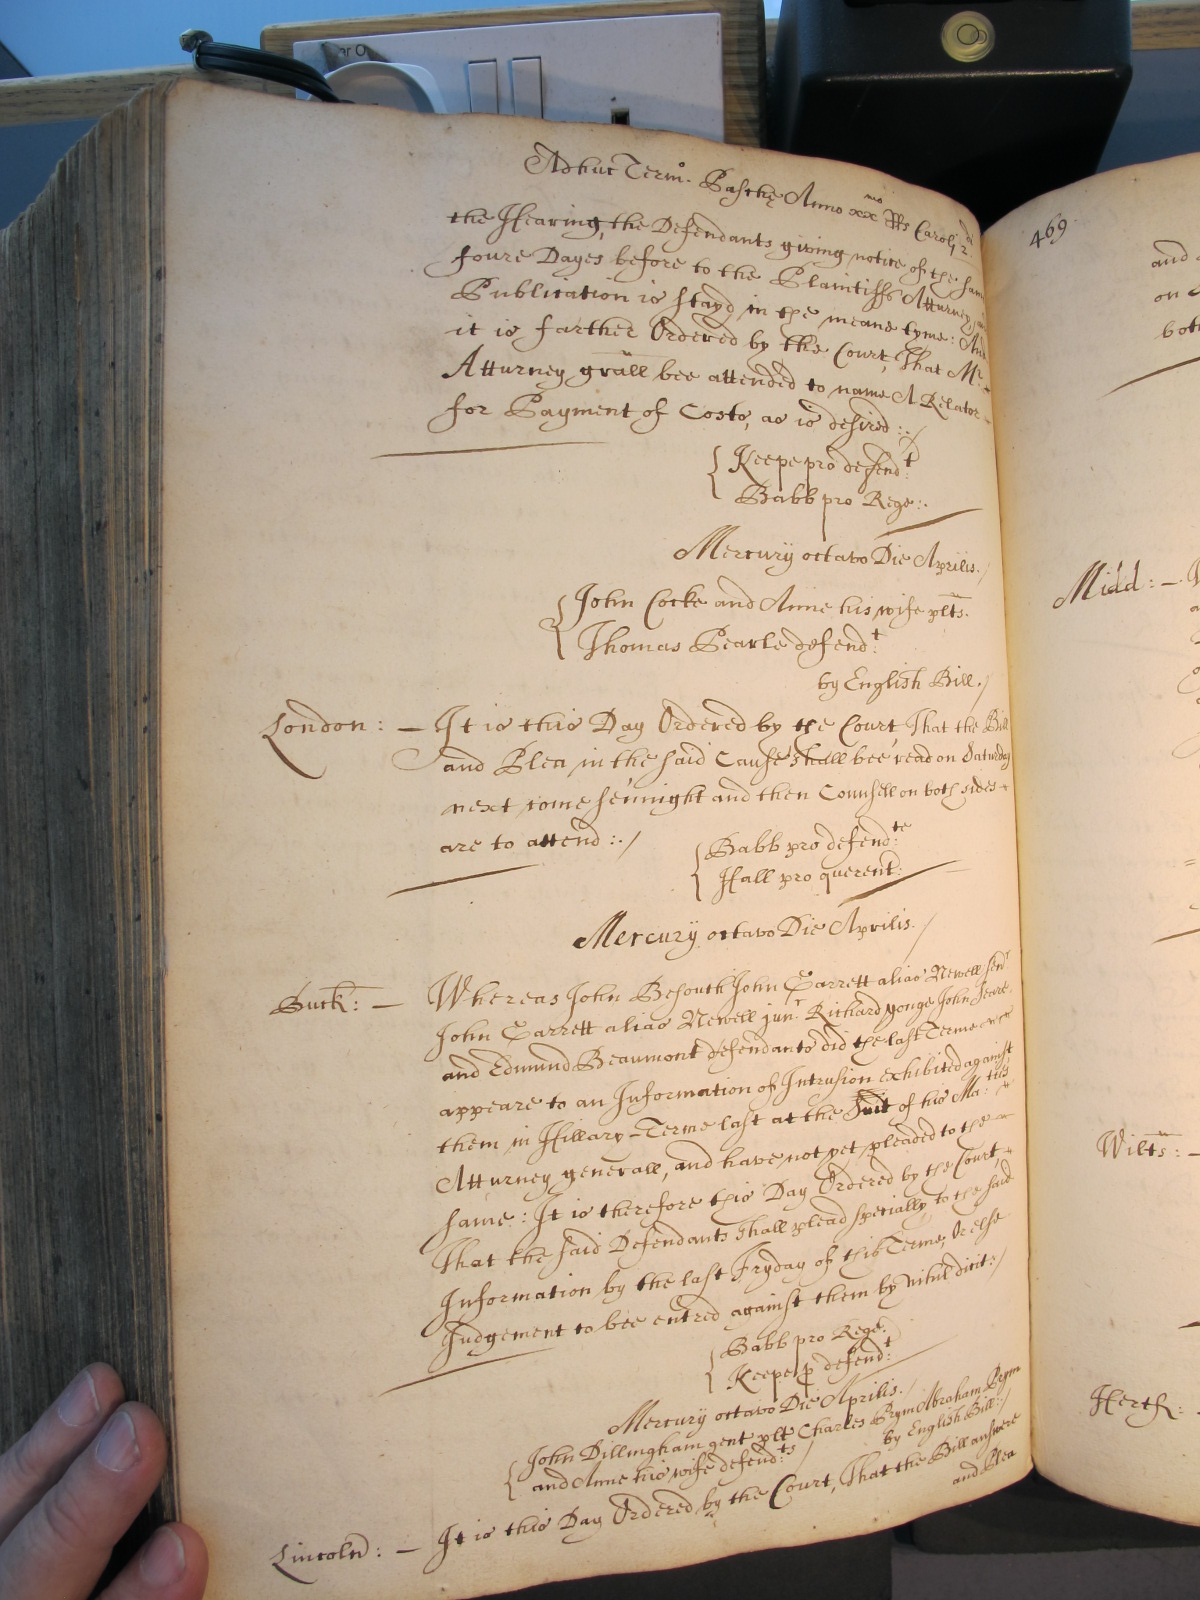 Adhuc Term.o Paschę Anno xx.mo R.Rs Caroli 2.di
the Hearing, the Defendants giving notice of the same
foure Dayes before to the Plaintiffs Atturney, and
Publication is stayd in the meane tyme: And
it is farther Ordered by the Court, That Mr.
Atturney grall bee attended to name A Relator
for Payment of Costs, as is desired :./
Keepe pro defend:t
Babb pro Rege:.
Mercurij octavo Die Aprilis./
John Cocke and Anne his wife plts.
Thomas Pearle defend:t
by English Bill./
London: — It is this Day Ordered by the Court That the Bill
and Plea in the said Cause shall bee read on Saturday
next come sennight and then Counsell on both sides
are to attend :./
Babb pro defend:te
Hall pro querent:
Mercurij octavo Die Aprilis./
Buck: — Whereas John Besouth John Garrett alias Newell sen.r
John Garrett alias Newell jun.r Richard yonge John Seare
and Edmund Beaumont defendants did the last Terme
appeare to an Information of Intrusion exhibited against
them in Hillary-Terme last at the Suit of his Ma:ties
Atturney generall, and have not yet pleaded to the
same: It is therefore this Day Ordered by the Court,
That the said Defendants shall plead specially to the said
Information by the last Fryday of this Terme, Or else
Judgement to bee entred against them by nihil dicit:/
Babb pro Rege.
Keepe p defend:t
Mercurij octavo Die Aprilis./
John Dillingham gent plt Charles Prym Abraham Prym
and Anne his wife defend:ts /
by English Bill:/
Lincoln: — It is this Day Ordered by the Court, That the Bill answere
and Plea
469
and
on
both
Midd: —
Wilts: —
Hertf: